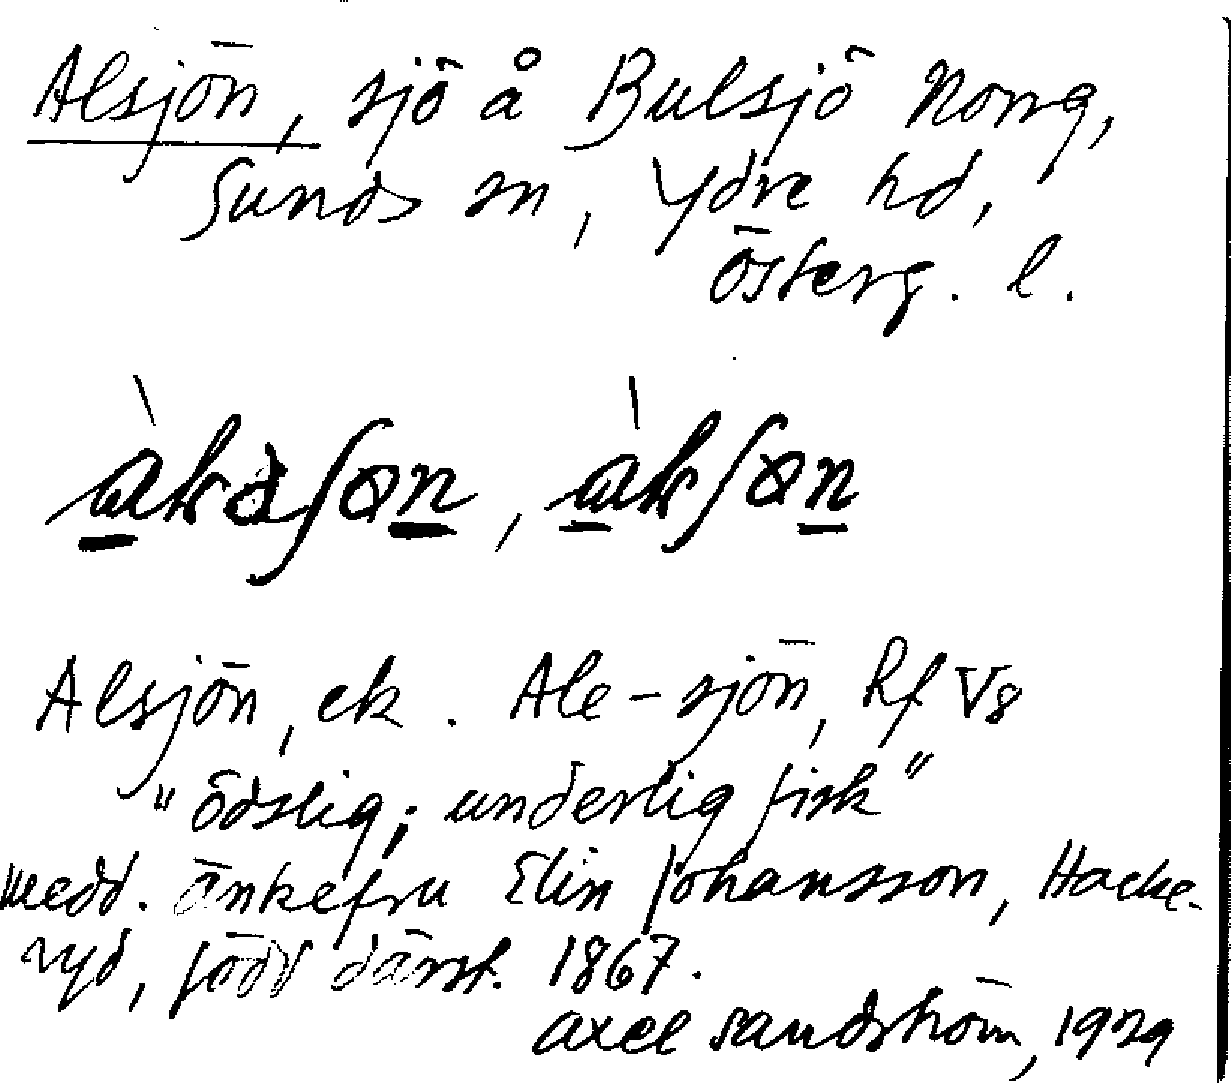 Alsjön, sjö å Bulsjö Norrg,
Sunds sn, Ydre hd,
Österg. l.
Alsjön, ek. Ale-sjön, Rf V8
"ödslig; underlig fisk"
medd. änkefru Elin Johansson, Hacke-
ryd, född därst. 1867.
Axel Sandström, 1929